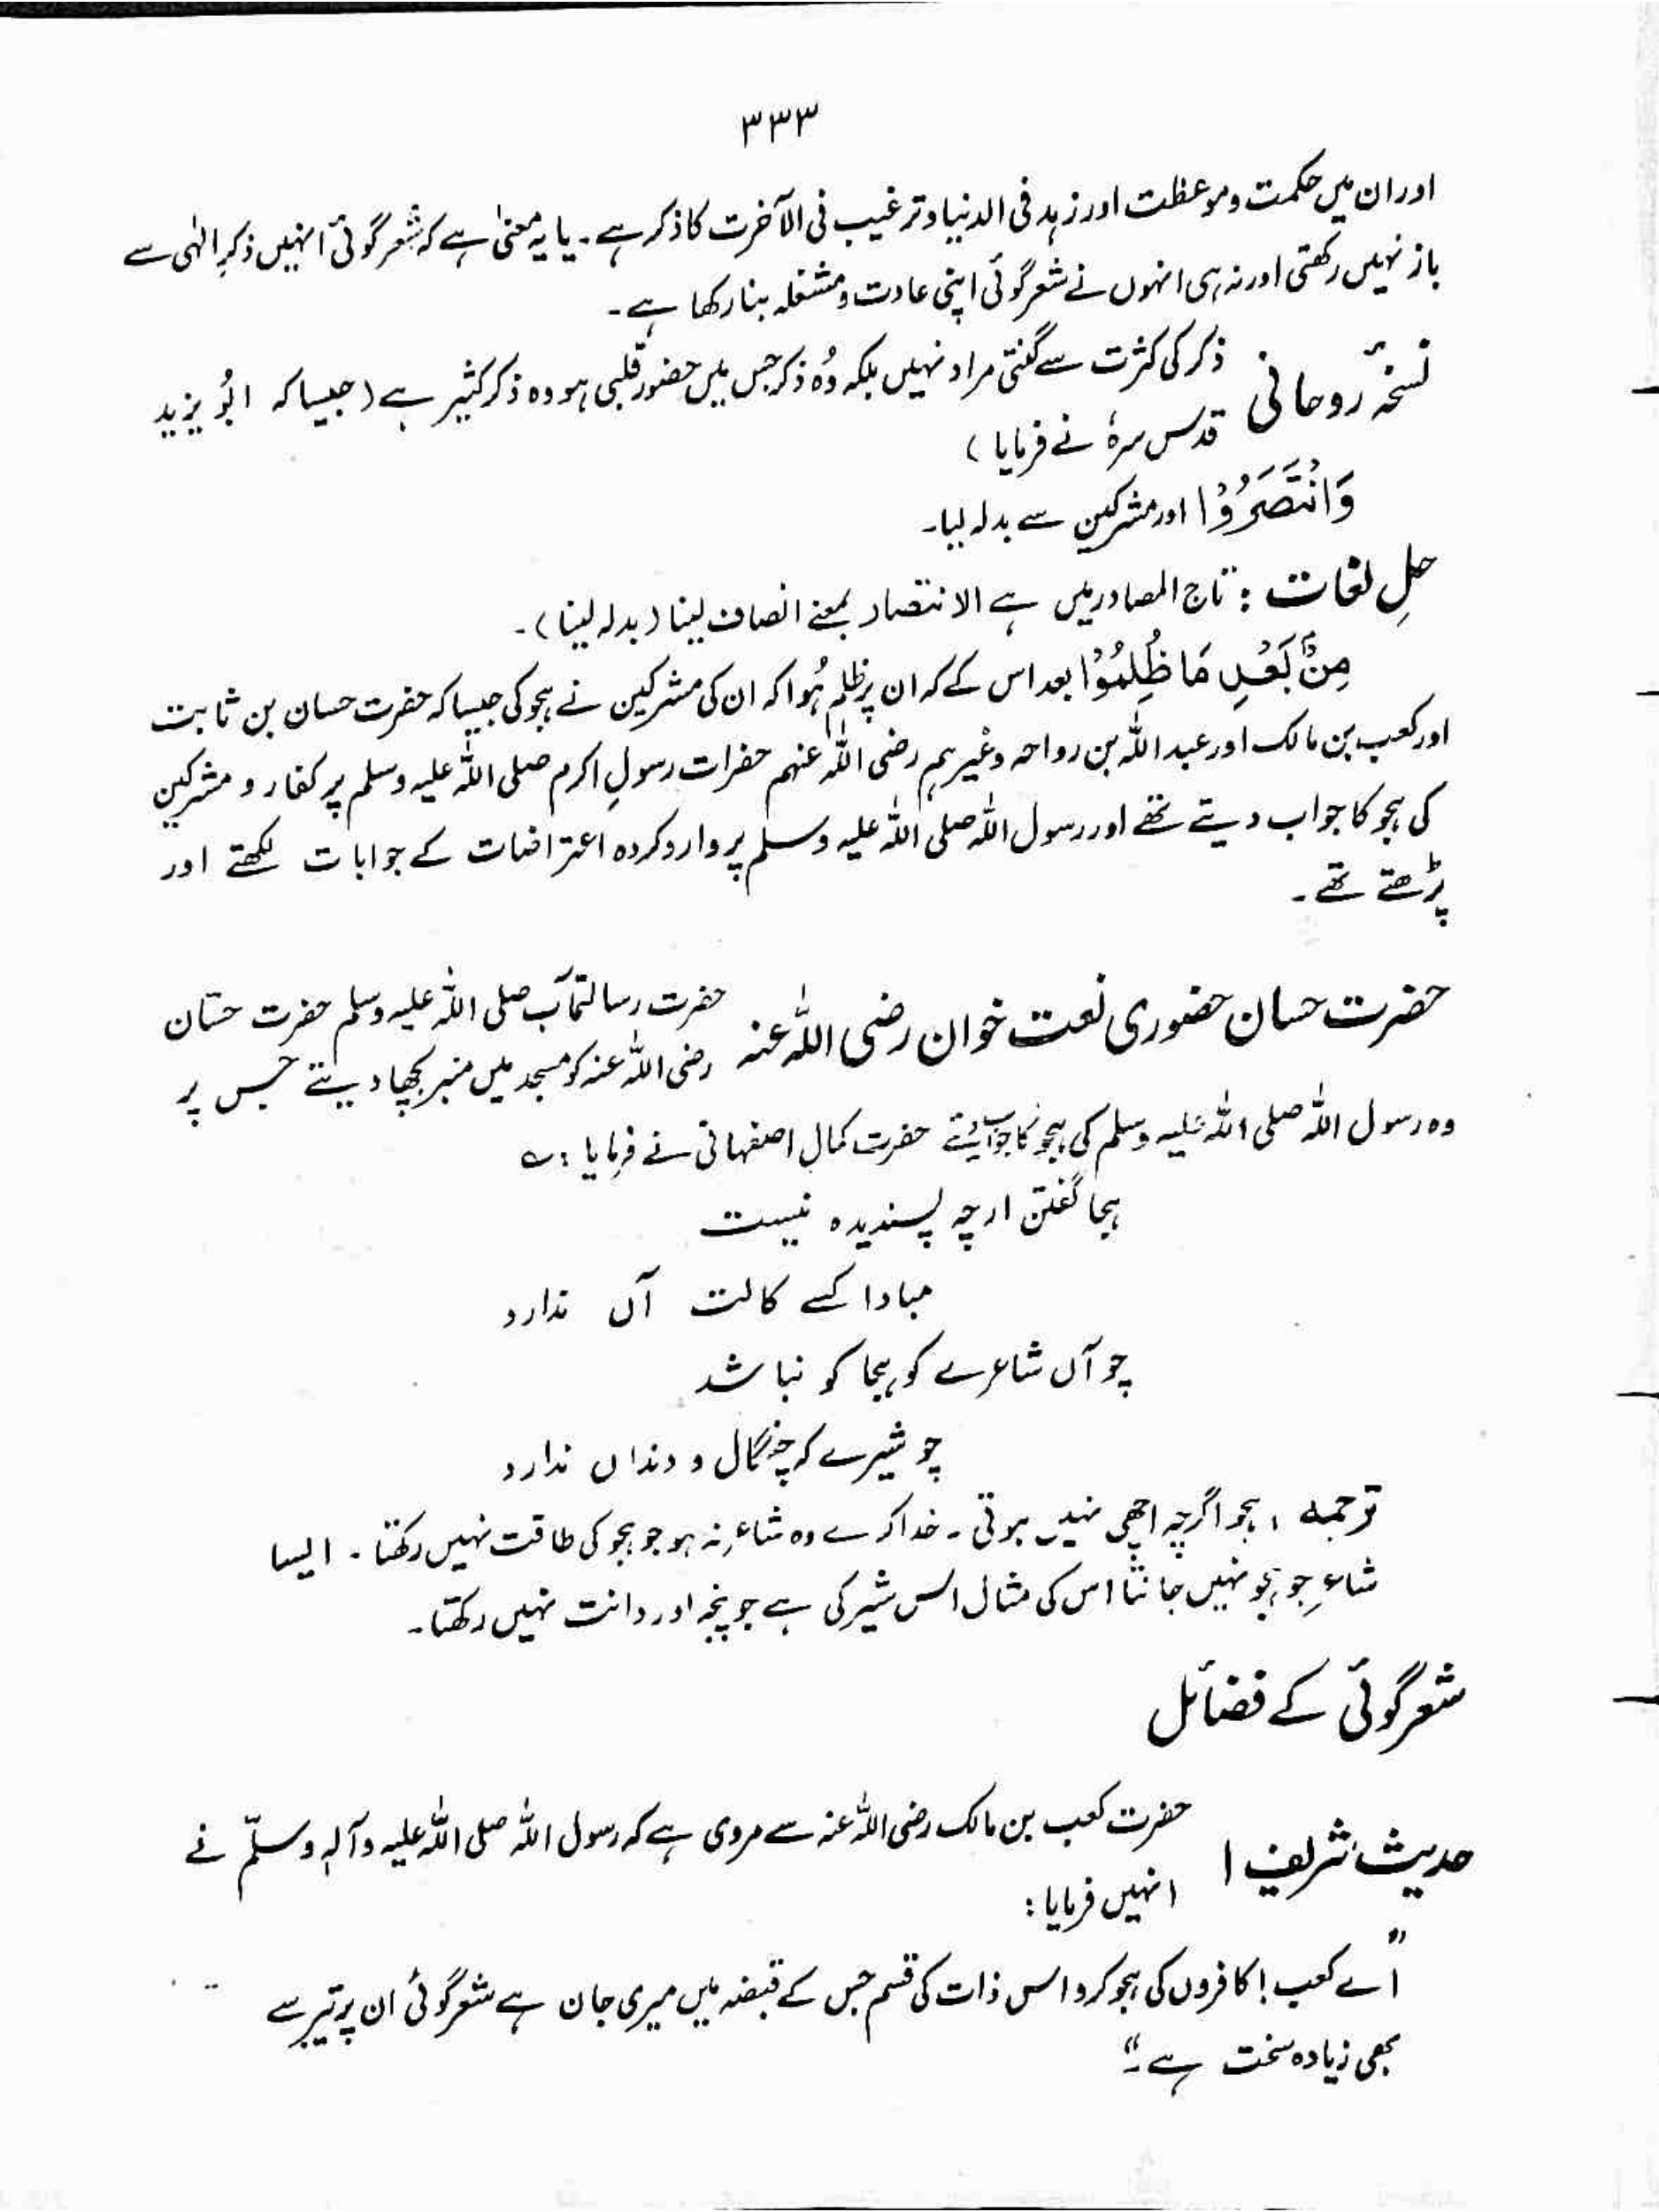 ۳۳۳
اور ان میں حکمت و موعظت اور زہد فی الدنیا و ترغیب فی الآخرت کا ذکر ہے۔ یا یہ معنیٰ ہے کہ شعر گوئی انہیں ذکرِ الٰہی سے
باز نہیں رکھتی اور نہ ہی انہوں نے شعر گوئی اپنی عادت و مشغلہ بنا رکھا ہے۔
نسخۂ روحانی ذکر کی کثرت سے گنتی مراد نہیں بلکہ وُہ ذکر جس میں حضور قلبی ہو وہ ذکر کثیر ہے (جیسا کہ ابُو یزید
قدس سرہٗ نے فرمایا)
وَانْتَصَرُوْا اور مشرکین سے بدلہ لیا۔
حلِ لغات : تاج المصادر میں ہے الانتصار بمعنے انصاف لینا (بدلہ لینا)۔
مِنْۢ بَعْدِ مَا ظُلِمُوْا بعد اس کے کہ ان پر ظلم ہُوا کہ ان کی مشرکین نے ہجو کی جیسا کہ حضرت حسان بن ثابت
اور کعب بن مالک اور عبداللہ بن رواحہ وغیرہم رضی اللہ عنہم حضرات رسولِ اکرم صلی اللہ علیہ وسلم پر کفار و مشرکین
کی ہجو کا جواب دیتے تھے اور رسول اللہ صلی اللہ علیہ وسلم پر وارد کردہ اعتراضات کے جوابات لکھتے اور
پڑھتے تھے۔
حضرت حسان حضوری نعت خوان رضی اللہ عنہ حضرت رسالتمآب صلی اللہ علیہ وسلم حضرت حسّان
رضی اللہ عنہ کو مسجد میں منبر بچھا دیتے جس پر
وہ رسول اللہ صلی اللہ علیہ وسلم کی ہجو کا جواب دیتے حضرت کمال اصفہانی نے فرمایا : ؎
ہجا گفتن ارچہ پسندیدہ نیست
مبادا کسے کالت آں ندارد
چو آں شاعرے کو ہجا کو نباشد
چو شیرے کہ چنگال و دنداں ندارد
ترجمہ : ہجو اگرچہ اچھی نہیں ہوتی۔ خدا کرے وہ شاعر نہ ہو جو ہجو کی طاقت نہیں رکھتا۔ ایسا
شاعر جو ہجو نہیں جانتا اس کی مثال اس شیر کی ہے جو پنجہ اور دانت نہیں رکھتا۔
شعر گوئی کے فضائل
حدیث شریف ۱ حضرت کعب بن مالک رضی اللہ عنہ سے مروی ہے کہ رسول اللہ صلی اللہ علیہ وآلہٖ وسلّم نے
انہیں فرمایا :
"اے کعب! کافروں کی ہجو کرو اس ذات کی قسم جس کے قبضہ میں میری جان ہے شعر گوئی ان پر تیر سے
بھی زیادہ سخت ہے۔"